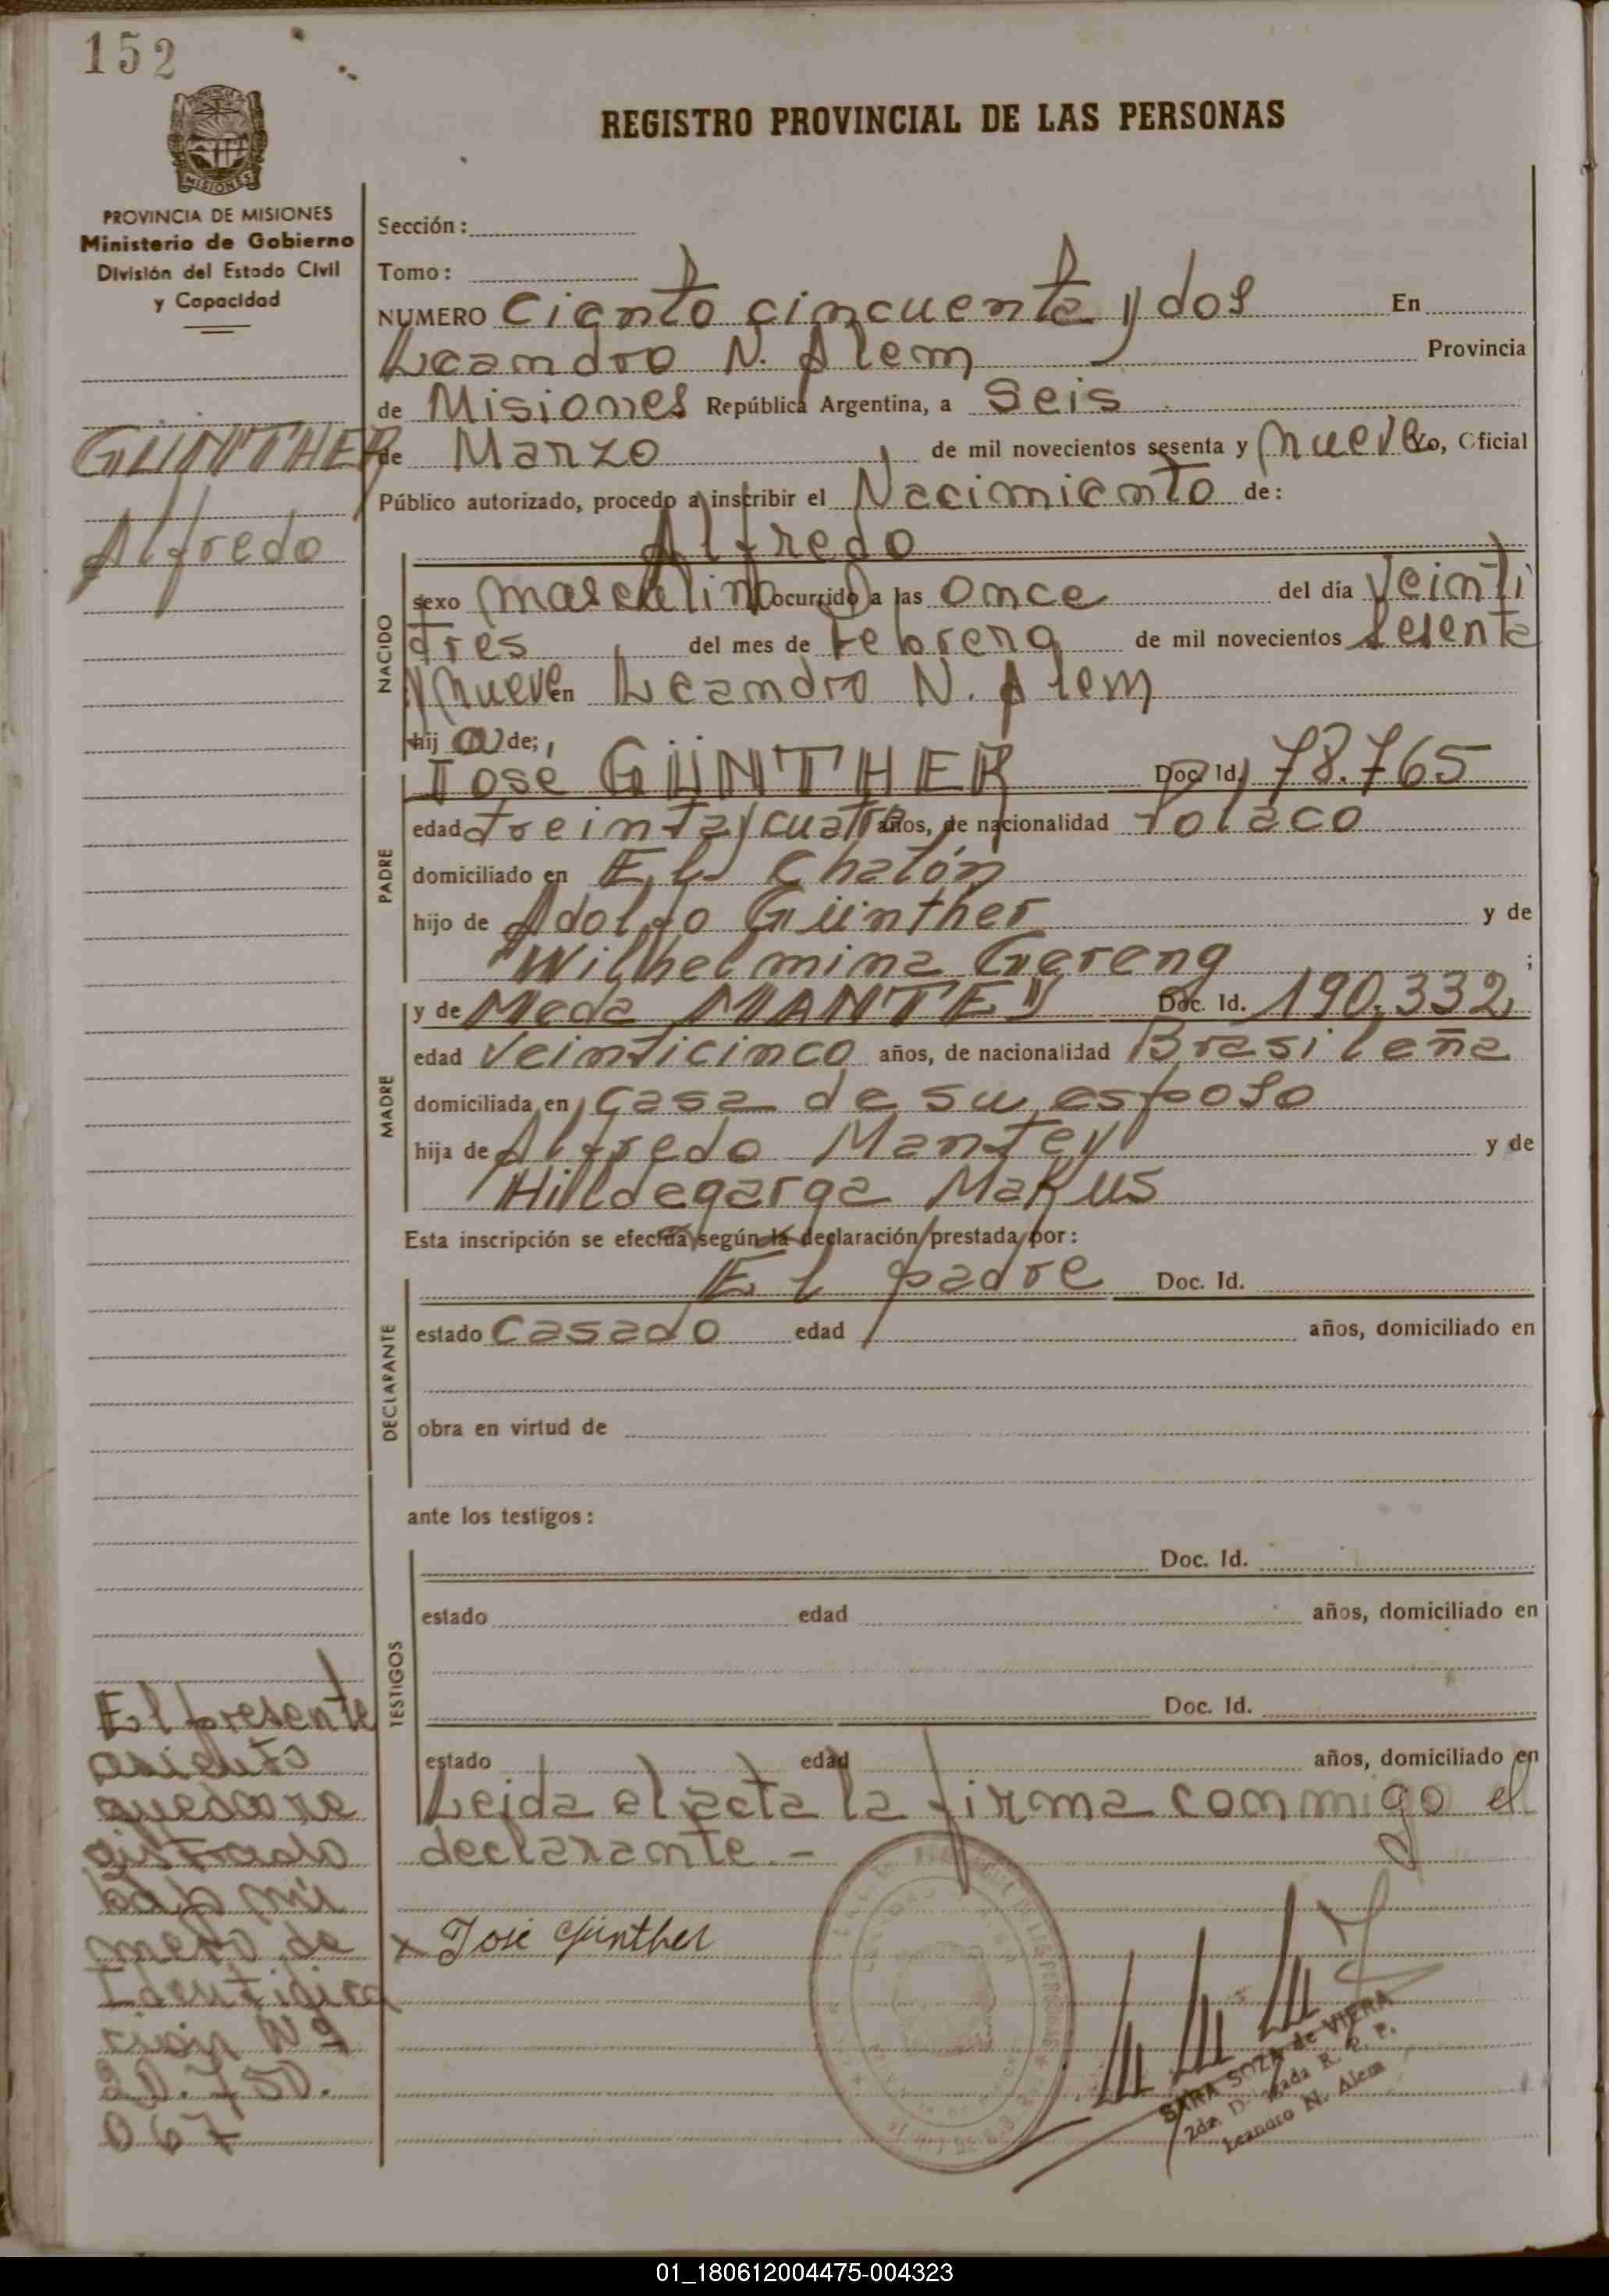 152
REGISTRO PROVINCIAL DE LAS PERSONAS
MISIONES
PROVINCIA DE MISIONES
Ministerio de Gobierno
División del Estado Civil
y Capacidad
GÜNTHER
Alfredo
Sección:
Tomo:
NUMERO Ciento cincuenta y dos En
Leandro N. Alem Provincia
de Misiones República Argentina, a Seis
de Marzo de mil novecientos sesenta y nueve Yo, Oficial
Público autorizado, procedo a inscribir el Nacimiento de:
Alfredo
NACIDO
sexo masculino ocurrido a las once del día Veinti
tres del mes de Febrero de mil novecientos sesenta
y nueve en Leandro N. Alem
hij o de;
PADRE
José GÜNTHER Doc. Id. 78.765
edad treinta y cuatro años, de nacionalidad Polaco
domiciliado en El Chatón
hijo de Adolfo Günther y de
Wilhelmina Gereng ;
MADRE
y de Meda MANTEY Doc. Id. 190.332
edad Veinticinco años, de nacionalidad Brasileña
domiciliada en Casa de su esposo
hija de Alfredo Mantey y de
Hilldegarga Markus
Esta inscripción se efectúa según la declaración prestada por:
DECLARANTE
El padre Doc. Id.
estado Casado edad años, domiciliado en
obra en virtud de
ante los testigos:
TESTIGOS
Doc. Id.
estado edad años, domiciliado en
Doc. Id.
estado edad años, domiciliado en
Leida el acta la firma conmigo el
declarante.-
x José Günther
SARA SOZA de VIERA
2da. D. R. P. P.
Leandro N. Alem
El presente
asiento
queda re
gistrado
bajo nú
mero de
Identifica
ción Nº
20.750.
067
01_180612004475-004323